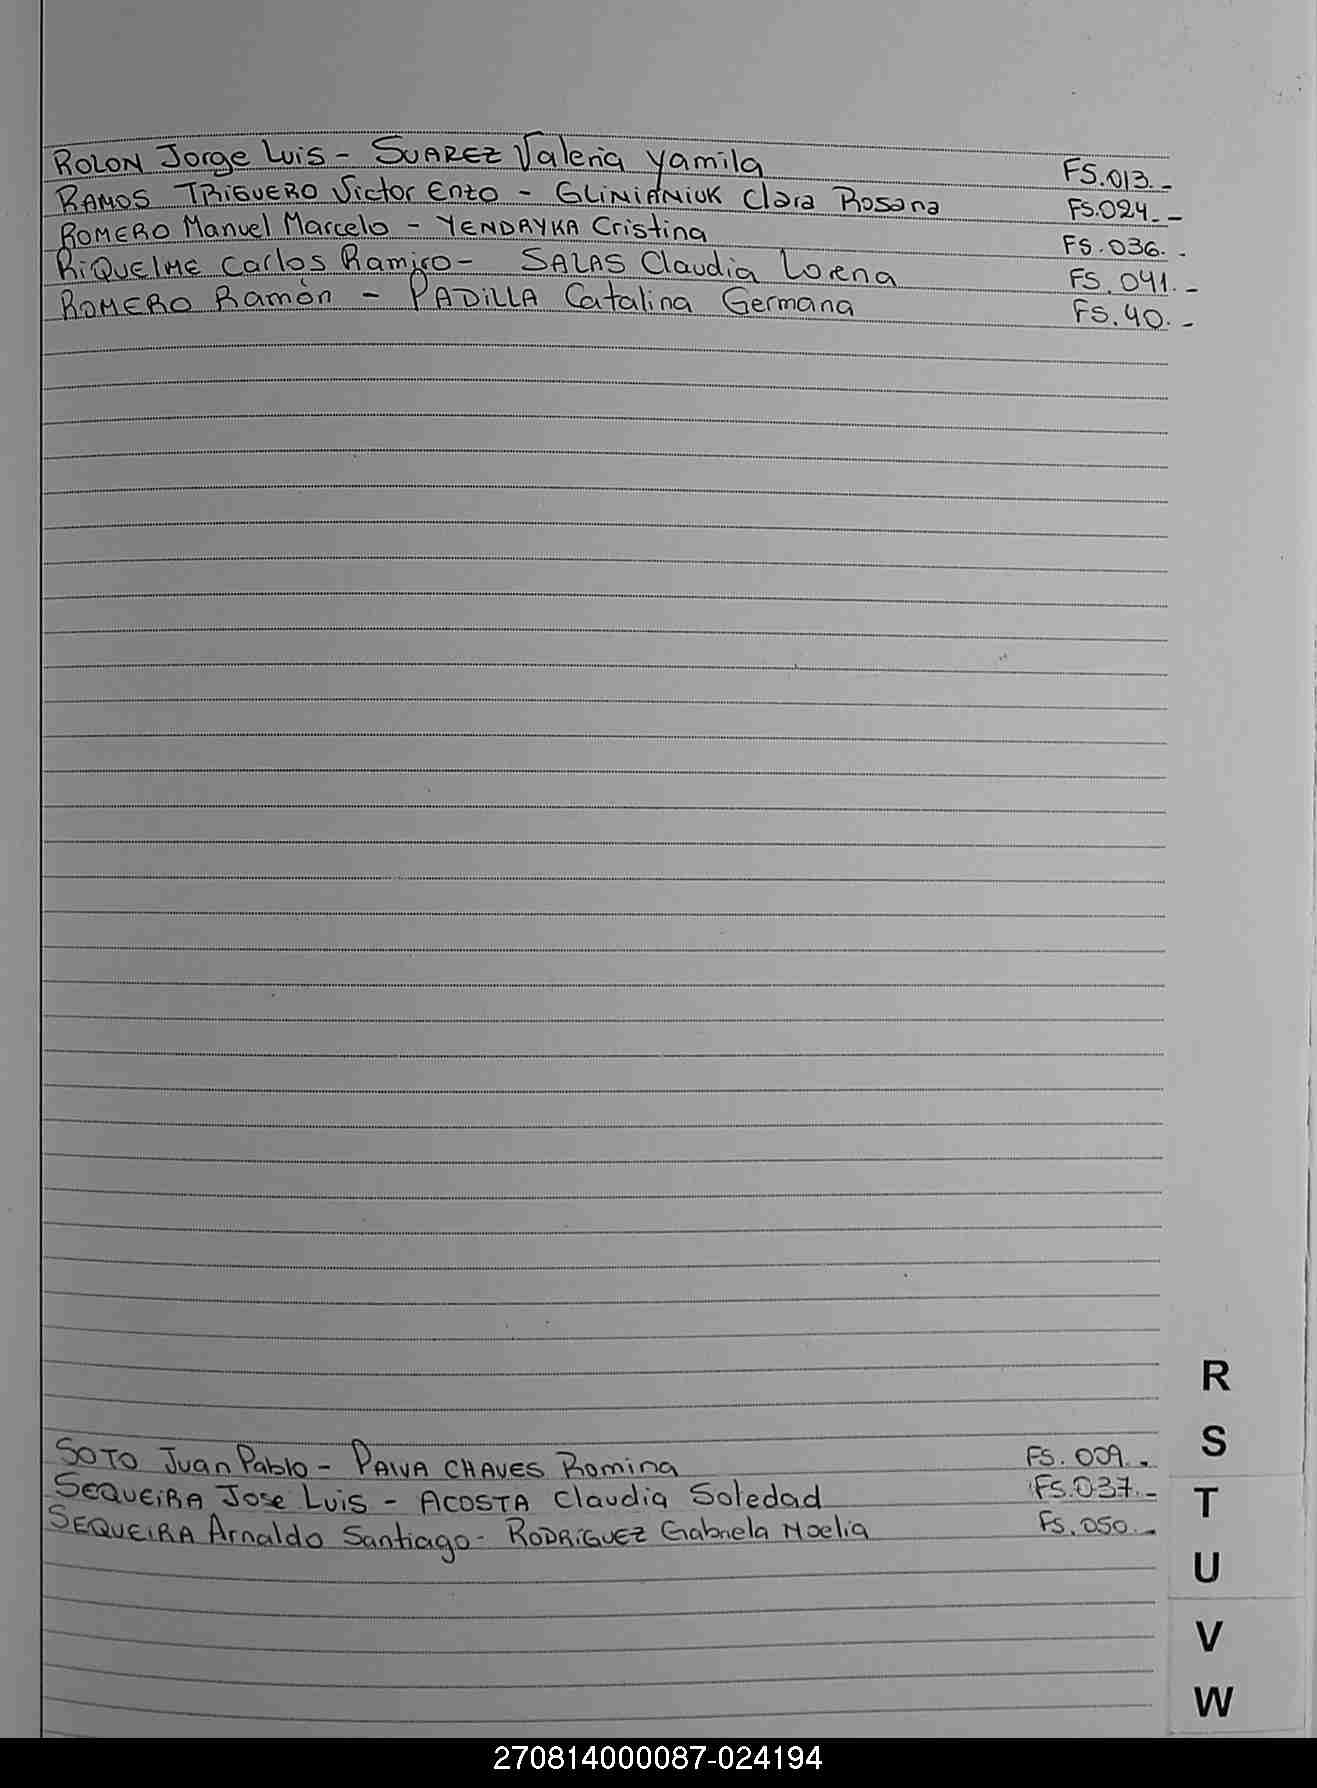 ROLON Jorge Luis - SUAREZ Valeria Yamila FS.013.-
RAMOS TRIGUERO Victor Enzo - GLINIANIUK Clara Rosana FS.024.-
ROMERO Manuel Marcelo - YENDRYKA Cristina FS.036.-
RIQUELME Carlos Ramiro - SALAS Claudia Lorena FS.041.-
ROMERO Ramón - PADILLA Catalina Germana FS.40.-
SOTO Juan Pablo - PAIVA CHAVES Romina FS.009.-
SEQUEIRA Jose Luis - ACOSTA Claudia Soledad FS.037.-
SEQUEIRA Arnaldo Santiago - RODRIGUEZ Gabriela Noelia FS.050.-
R
S
T
U
V
W
270814000087-024194